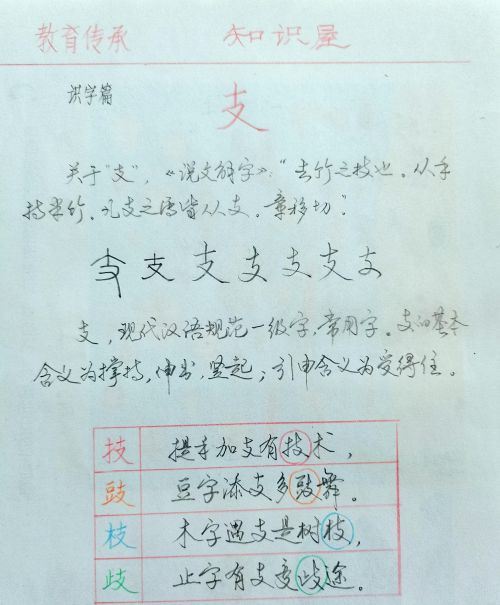 教育传承 知识屋
识字篇
支
关于"支",《说文解字》:"去竹之枝也。从手
持半竹。凡支之属皆从支。章移切"。
支 支 支 支 支 支 支
支,现代汉语规范一级字,常用字。支的基本
含义为撑持,伸出,竖起;引申含义为受得住。
技 提手加支有技术,
豉 豆字添支多豉舞。
枝 木字遇支是树枝,
歧 止字有支变歧途。